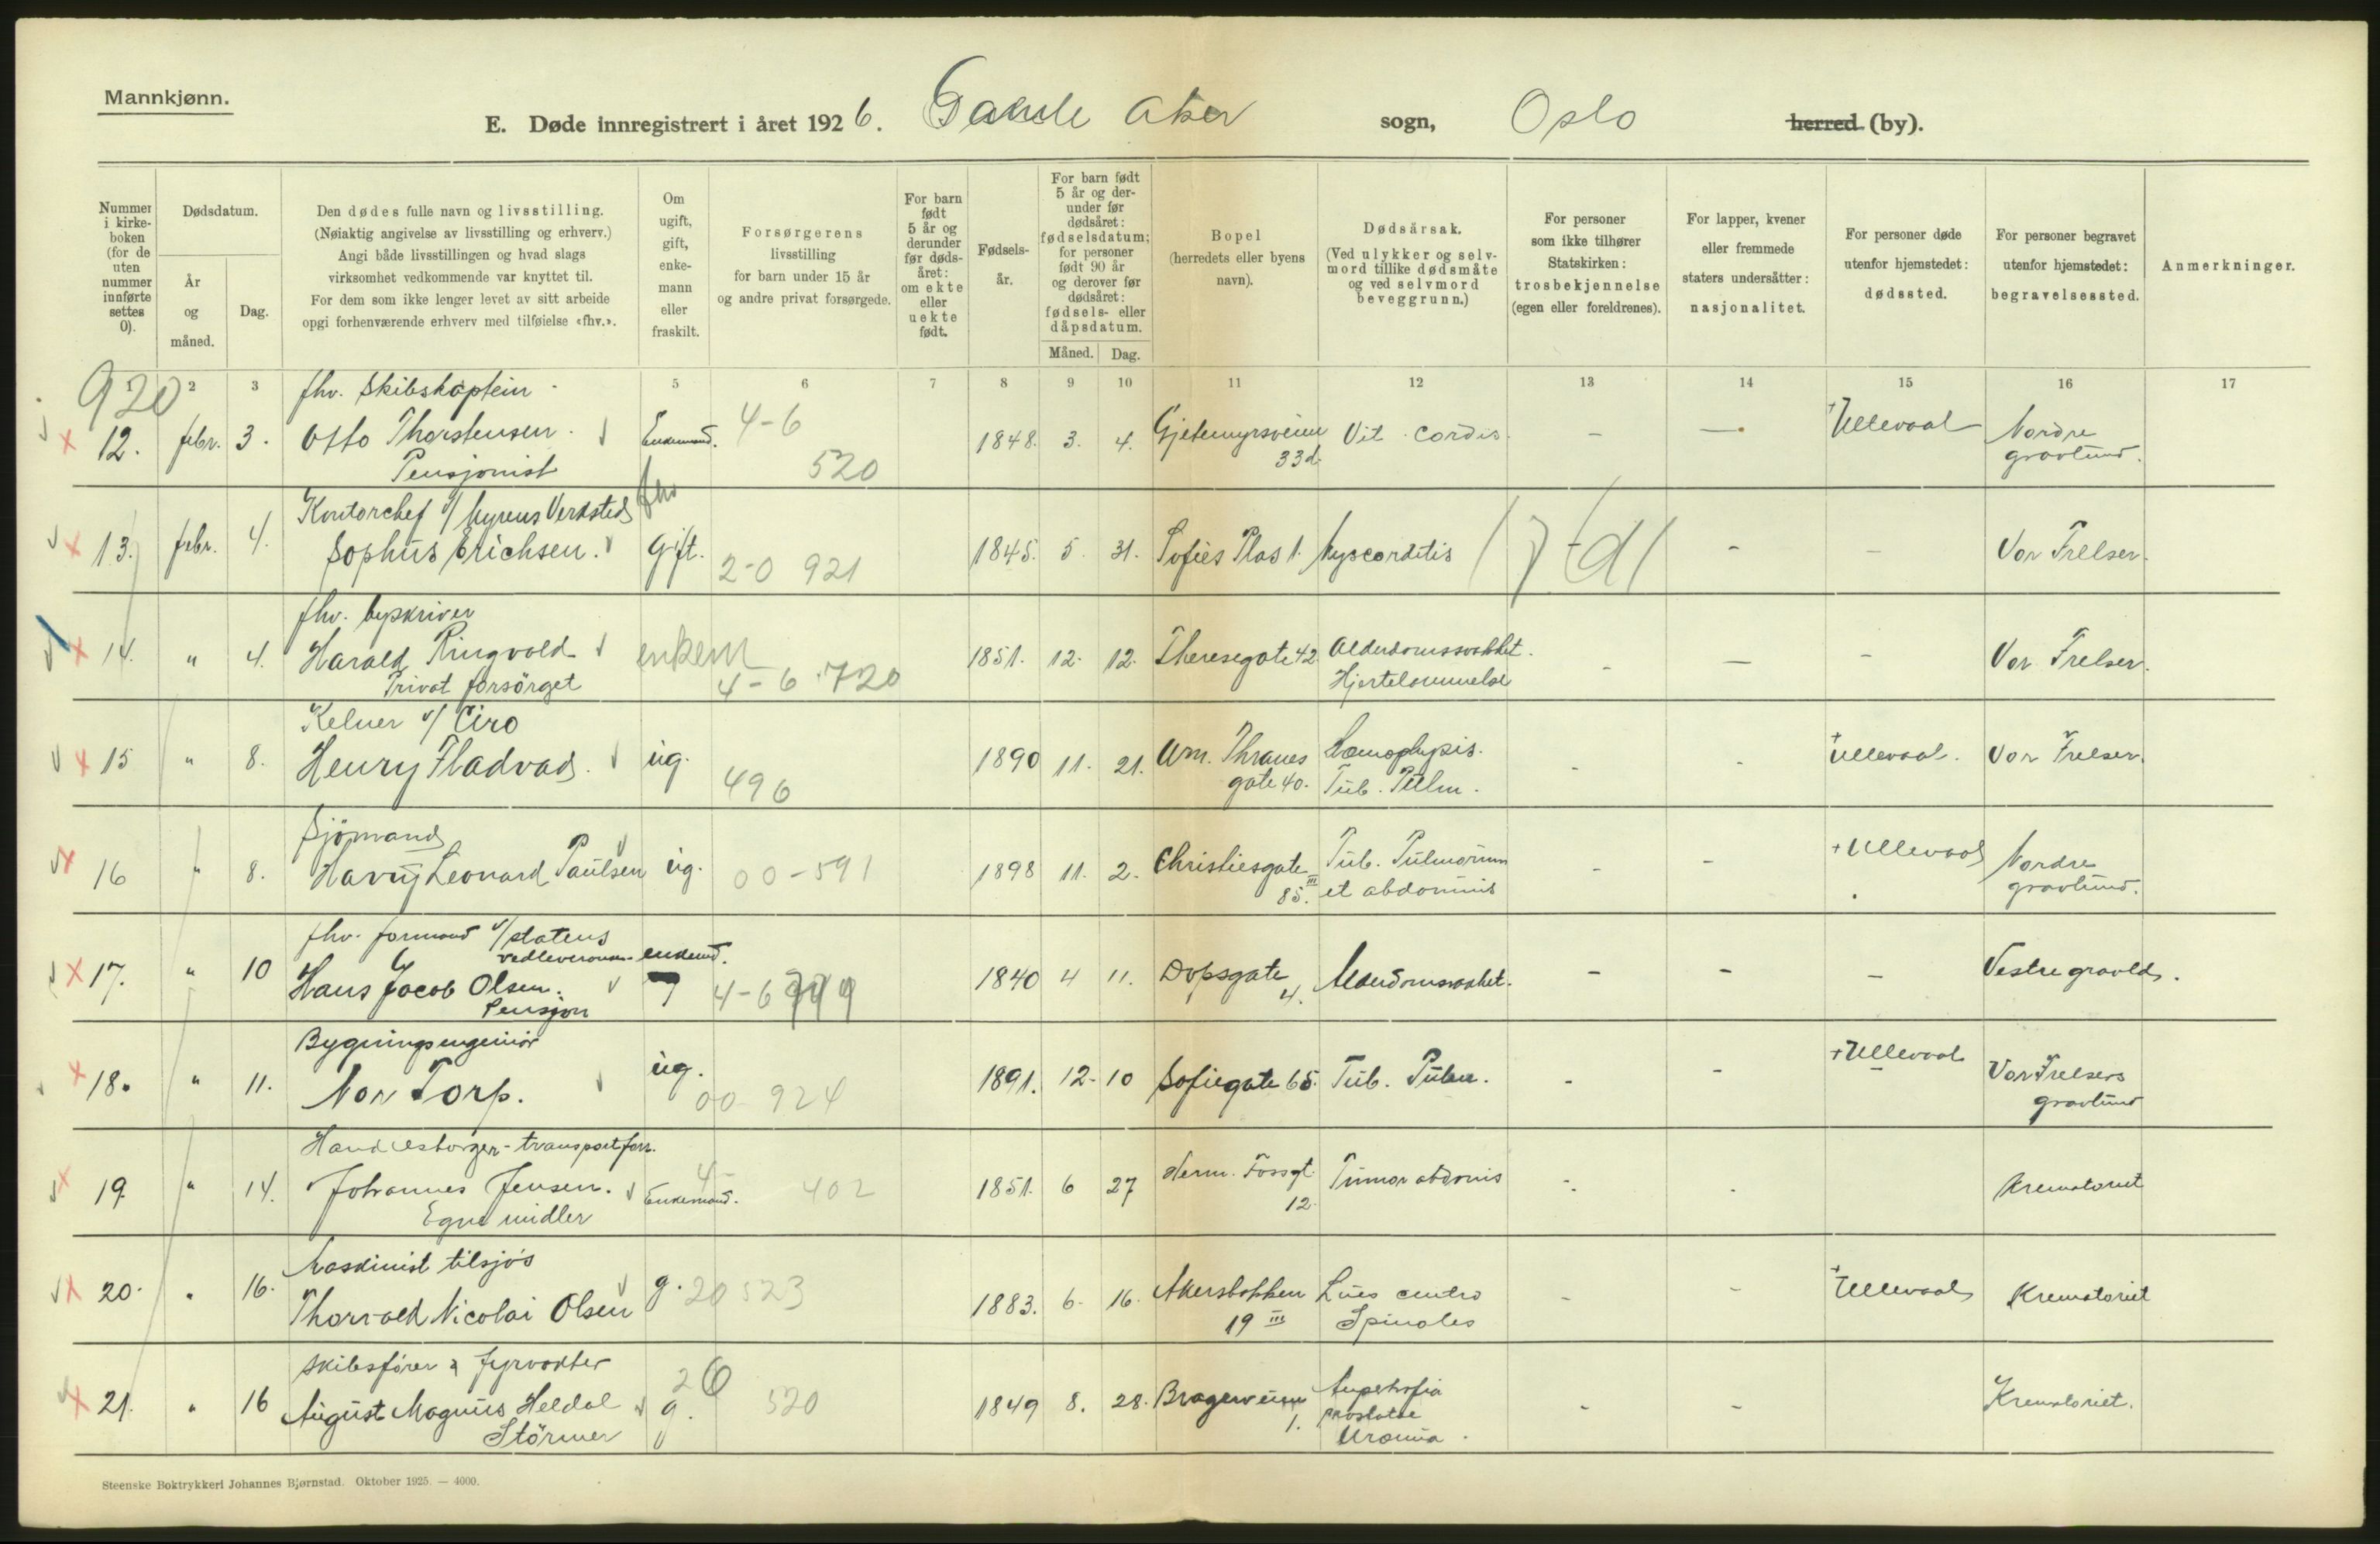 Mannkjønn.
E. Døde innregistrert i året 1926. Gamle Aker sogn, Oslo herred (by).
Nummer i kirkeboken (for de uten nummer innførte settes 0).
Dødsdatum.
År og måned.
Dag.
Den dødes fulle navn og livsstilling.
(Nøiaktig angivelse av livsstilling og erhverv.)
Angi både livsstillingen og hvad slags
virksomhet vedkommende var knyttet til.
For dem som ikke lenger levet av sitt arbeide
opgi forhenværende erhverv med tilføielse «fhv.».
Om ugift, gift, enkemann eller fraskilt.
Forsørgerens
livsstilling
for barn under 15 år
og andre privat forsørgede.
For barn født 5 år og derunder før dødsåret: om ekte eller uekte født.
Fødselsår.
For barn født 5 år og derunder før dødsåret: fødselsdatum; for personer født 90 år og derover før dødsåret: fødsels- eller dåpsdatum.
Måned. Dag.
Bopel
(herredets eller byens
navn).
Dødsårsak.
(Ved ulykker og selvmord tillike dødsmåte og ved selvmord beveggrunn.)
For personer
som ikke tilhører
Statskirken:
trosbekjennelse
(egen eller foreldrenes).
For lapper, kvener
eller fremmede
staters undersåtter:
nasjonalitet.
For personer døde
utenfor hjemstedet:
dødssted.
For personer begravet
utenfor hjemstedet:
begravelsessted.
Anmerkninger.
1 2 3 5 6 7 8 9 10 11 12 13 14 15 16 17
920
fhv. Skibskaptein
12. febr. 3. Otto Thorstensen. Enkemand. 4-6 1848. 3. 4. Gjetemyrsveien 33d. Vit. cordis. – – Ullevaal Nordre gravlund.
Pensjonist 520
Kontorchef v/ Myrens Verksted fhv
13. febr. 4. Sophus Erichsen. Gift. 2-0 921 1845. 5. 31. Sofies Plas 1. Myocarditis – – Vor Frelser.
fhv. byskriver
14. " 4. Harald Ringvold enkem 1851. 12. 12. Theresegate 42 Alderdomssvakhet. Hjertelammelse – – – Vor Frelser.
Privat forsörget 4-6 720
Kelner v/ Ciro
15 " 8. Henry Fladvad. ug. 496 1890 11. 21. Mar. Thranes gate 40. Hæmophysis. Tub. Pulm. - - Ullevaal. Vor Frelser.
Sjömand
16 " 8. Harry Leonard Paulsen ug. 00-591 1898 11. 2. Christiesgate 85. III Tub. Pulmonum et abdominis - - + Ullevaal Nordre gravlund.
fhv. formand v/ statens
17. " 10 Hans Jacob Olsen. enkemd. 4-6 1840 4 11. Dopsgate 4. Alderdomsvakhet. – – – Vestre gravld.
Pensjon
Bygningsingeniör
18. " 11. Nor Torp. ug. 00-924 1891. 12. 10 Sofiegate 65. Tub. Pulm. - - + Ullevaal Vor Frelsers gravlund
Handelsborger - transportforr.
19. " 14. Johannes Jensen. Enkemand. 4- 402 1851. 6 27 Herm. Fossgt. 12. Tumor abdomis - - Krematoriet
Egne midler
Maskinist tilsjös
20. " 16. Thorvald Nicolai Olsen g. 20 523 1883. 6. 16. Akersbakken 19 III Lues centro Spinales - - Ullevaal Krematoriet
Skibsfører & fyrvokter
21. " 16 August Magnus Heldal g. 26 520 1849 8. 28. Brageveien 1. Hypertrofia prostatae Uræmia. - - Krematoriet.
Störmer
Steenske Boktrykkeri Johannes Bjørnstad. Oktober 1925. — 4000.